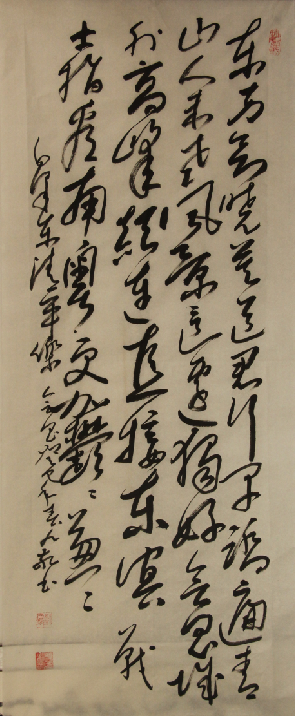 东方欲晓莫道君行早踏遍青
山人未老风景这边独好会昌城
外高峰颠连直接东溟战
士指看南粤更加郁郁葱葱
毛泽东清平乐会昌